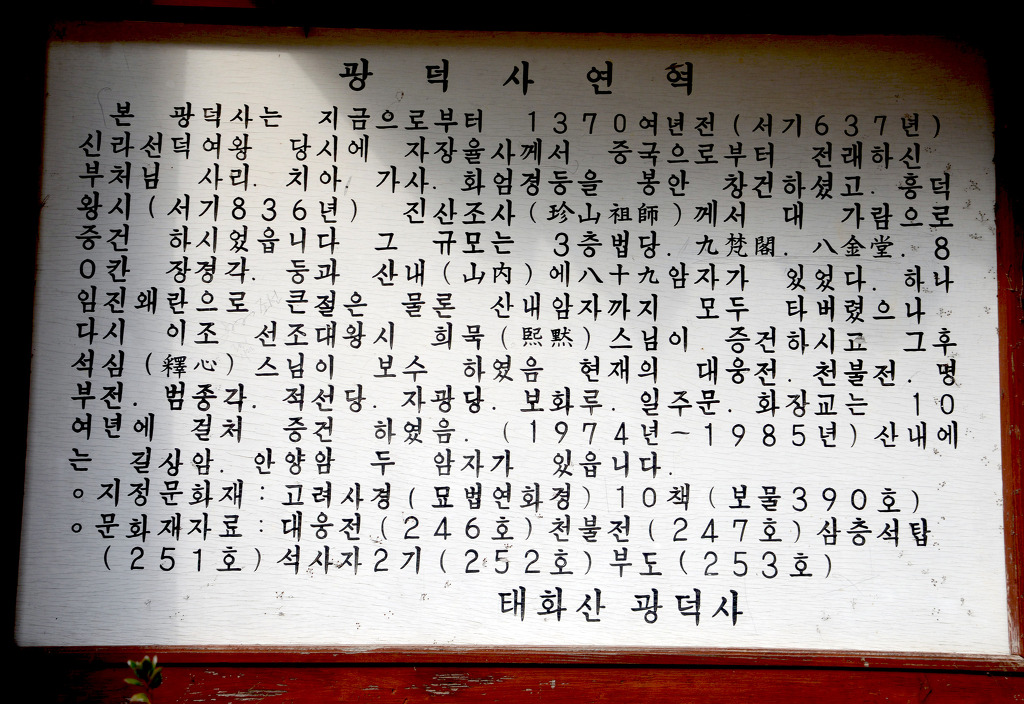 광덕사연혁
본 광덕사는 지금으로부터 1370여년전(서기637년)
신라선덕여왕 당시에 자장율사께서 중국으로부터 전래하신
부처님 사리. 치아. 가사. 화엄경등을 봉안 창건하셨고. 흥덕
왕시(서기836년) 진산조사(珍山祖師)께서 대 가람으로
중건 하시었읍니다 그 규모는 3층법당. 九梵閣. 八金堂. 8
0칸 장경각. 등과 산내(山内)에八十九암자가 있었다. 하나
임진왜란으로 큰절은 물론 산내암자까지 모두 타버렸으나
다시 이조 선조대왕시 희묵(熙黙)스님이 중건하시고 그후
석심(釋心)스님이 보수 하였음 현재의 대웅전. 천불전. 명
부전. 범종각. 적선당. 자광당. 보화루. 일주문. 화장교는 10
여년에 걸처 중건 하였음. (1974년~1985년)산내에
는 길상암. 안양암 두 암자가 있읍니다.
○지정문화재:고려사경(묘법연화경)10책(보물390호)
○문화재자료:대웅전(246호)천불전(247호)삼층석탑
(251호)석사자2기(252호)부도(253호)
태화산 광덕사